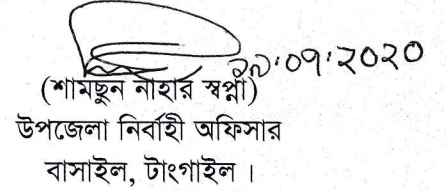 ২৯:০৭:২০২০
(শামছুন নাহার স্বপ্না)
উপজেলা নির্বাহী অফিসার
বাসাইল, টাংগাইল ।